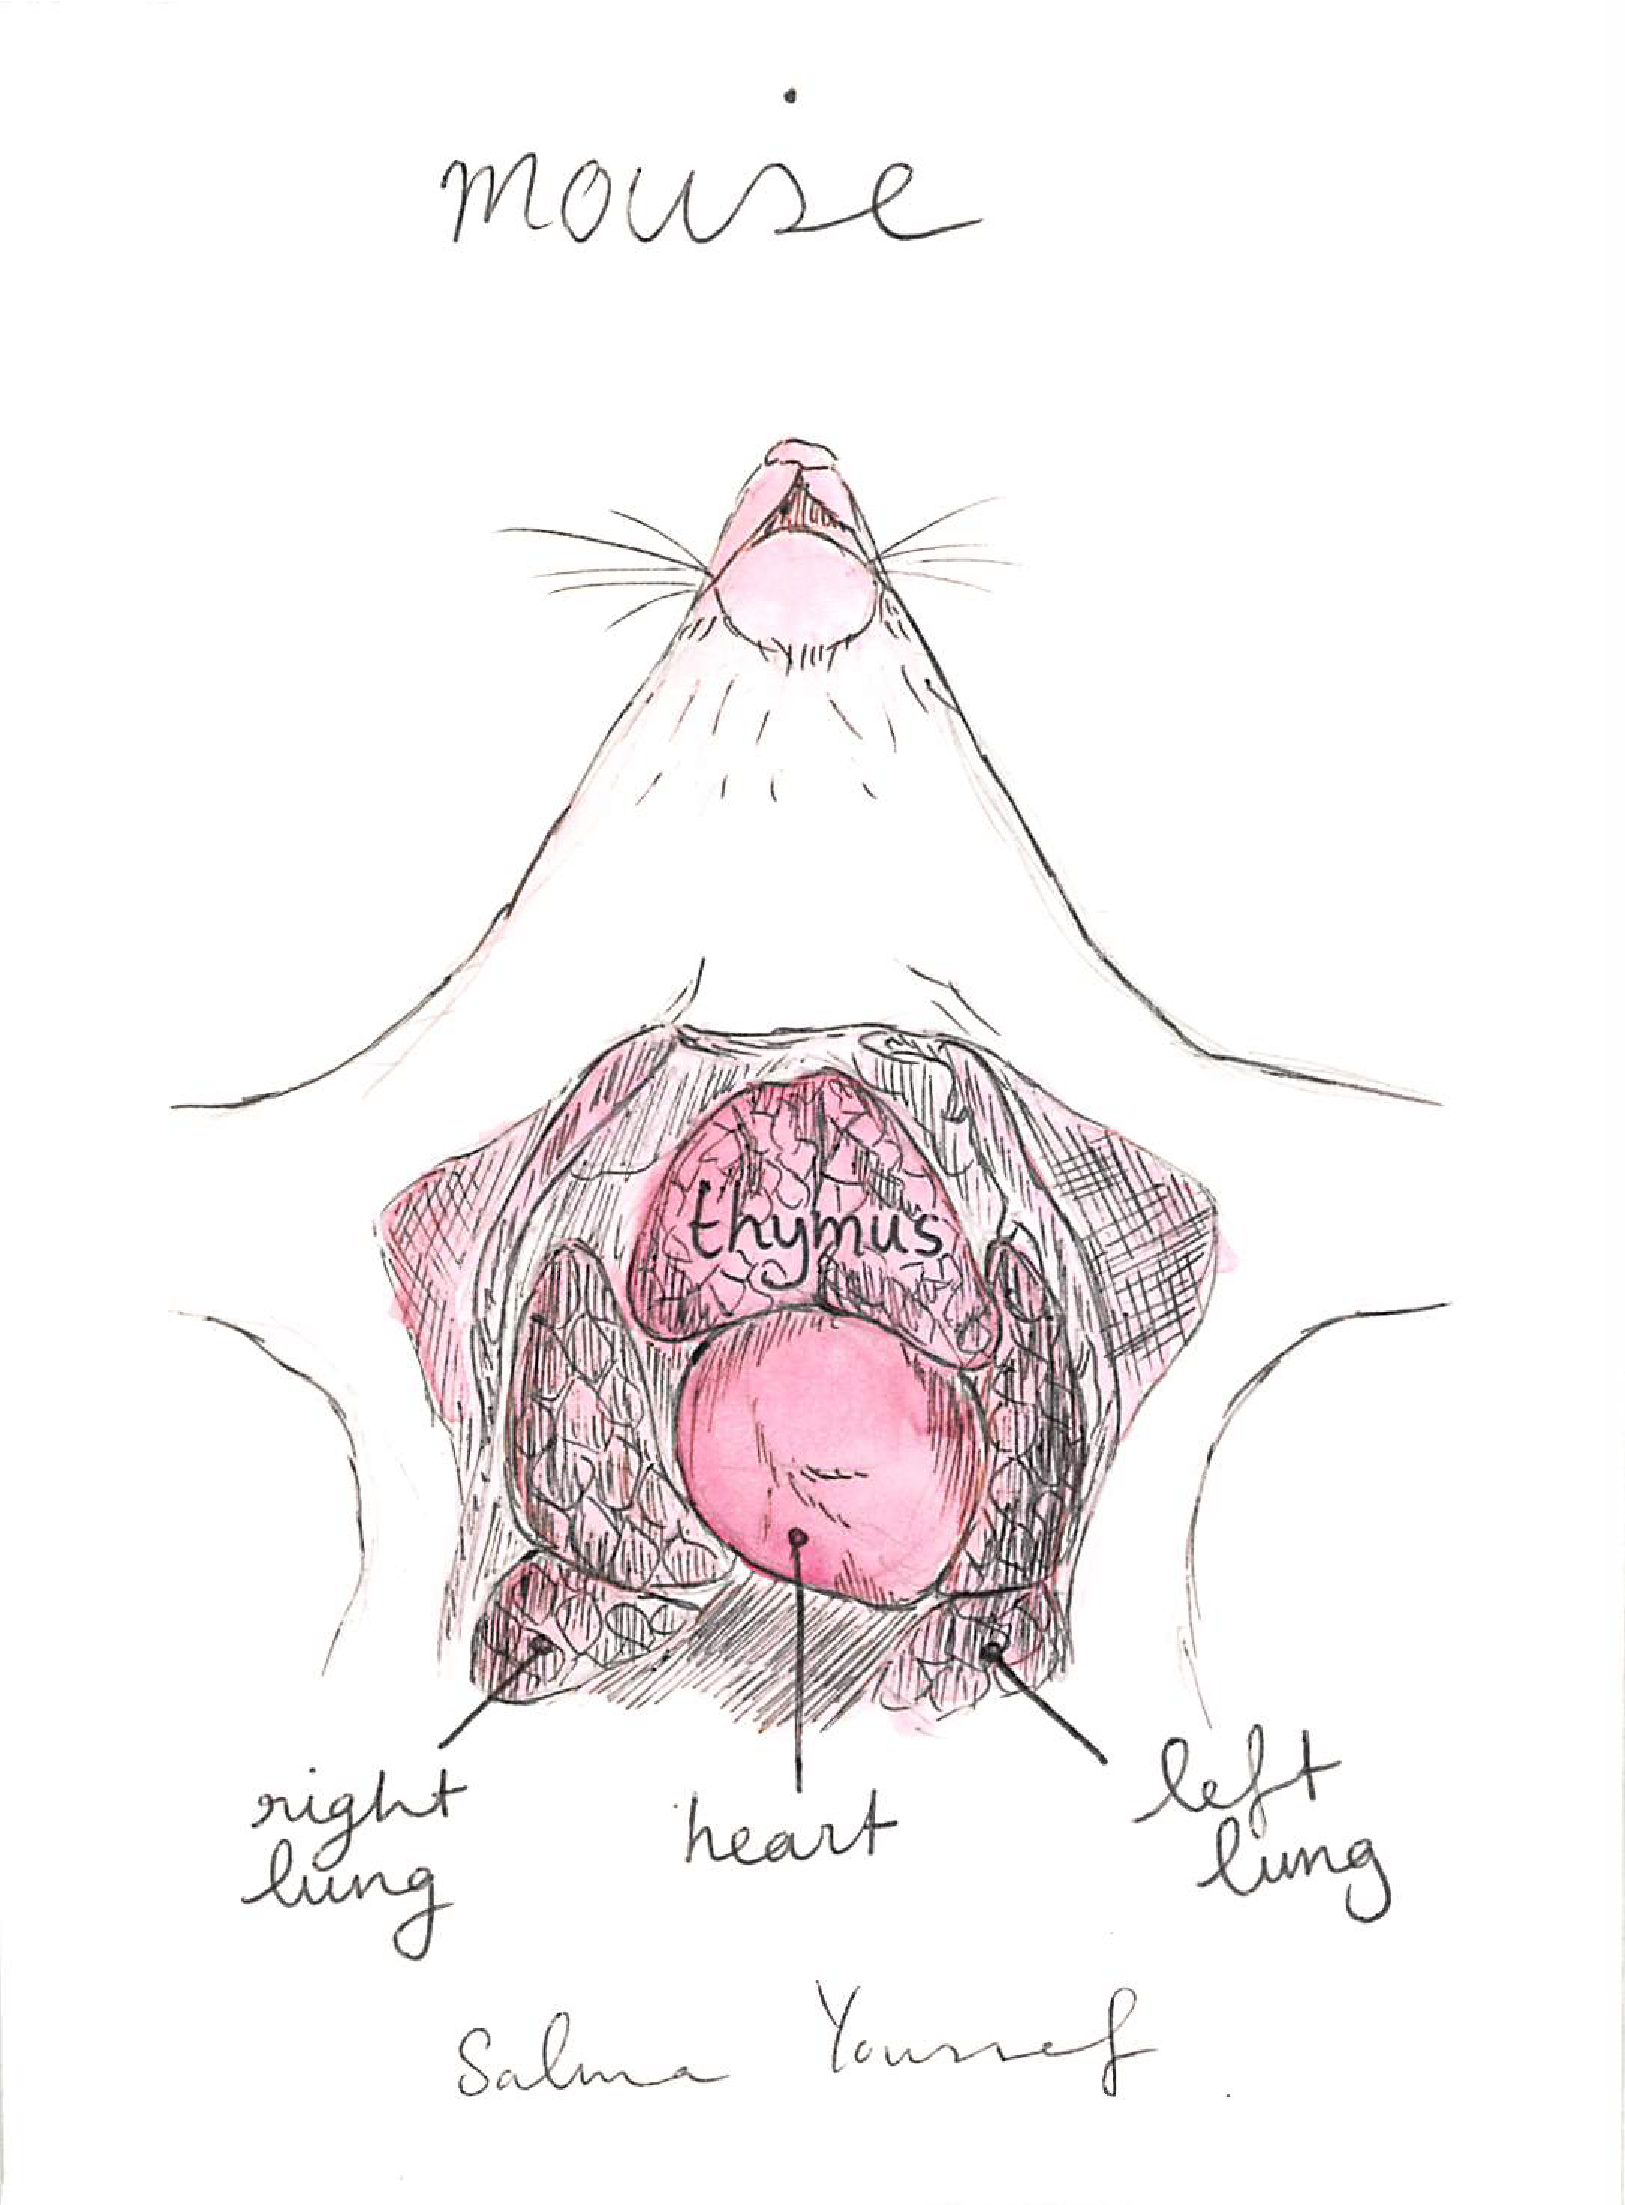 mouse
thymus
right
lung
heart
left
lung
Salma Youssef